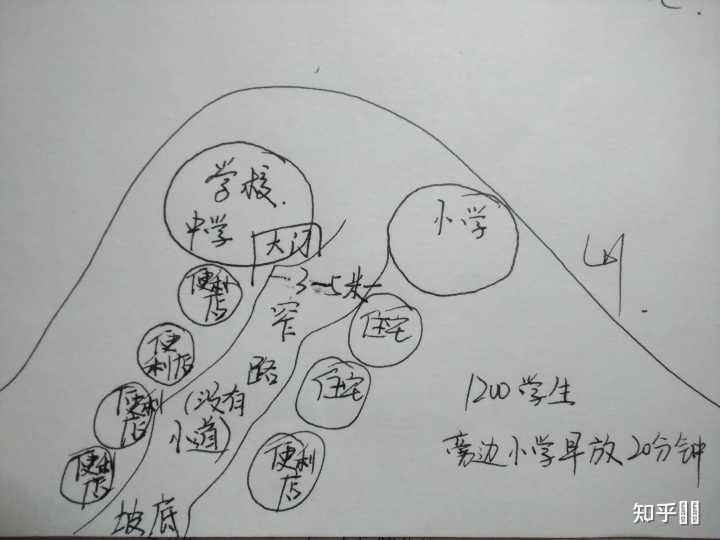 学校
中学
大门
小学
山
3-5米
窄
路
(没有
小道)
便利
店
便
利店
便利
店
便利
店
住宅
住宅
便利
店
坡底
1200学生
旁边小学早放20分钟
知乎